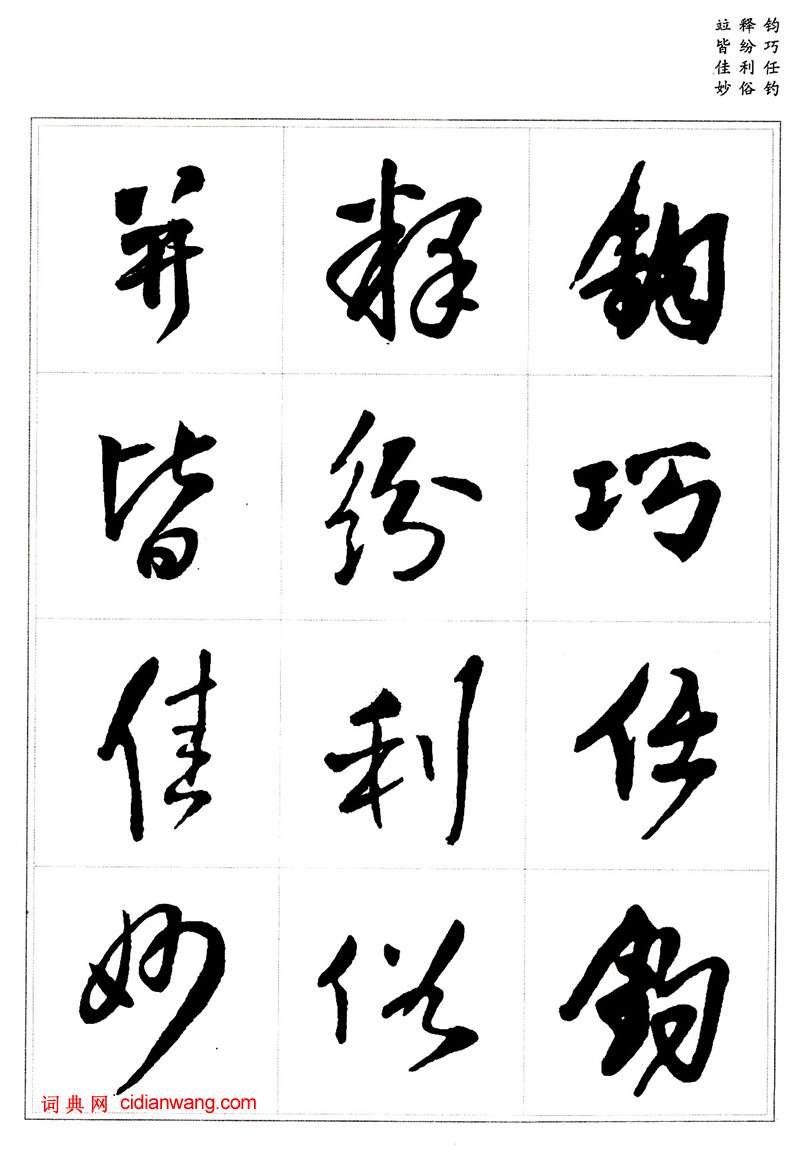 钧巧任钓
释纷利俗
竝皆佳妙
鈞巧任釣
释紛利俗
并皆佳妙
词典网 cidianwang.com